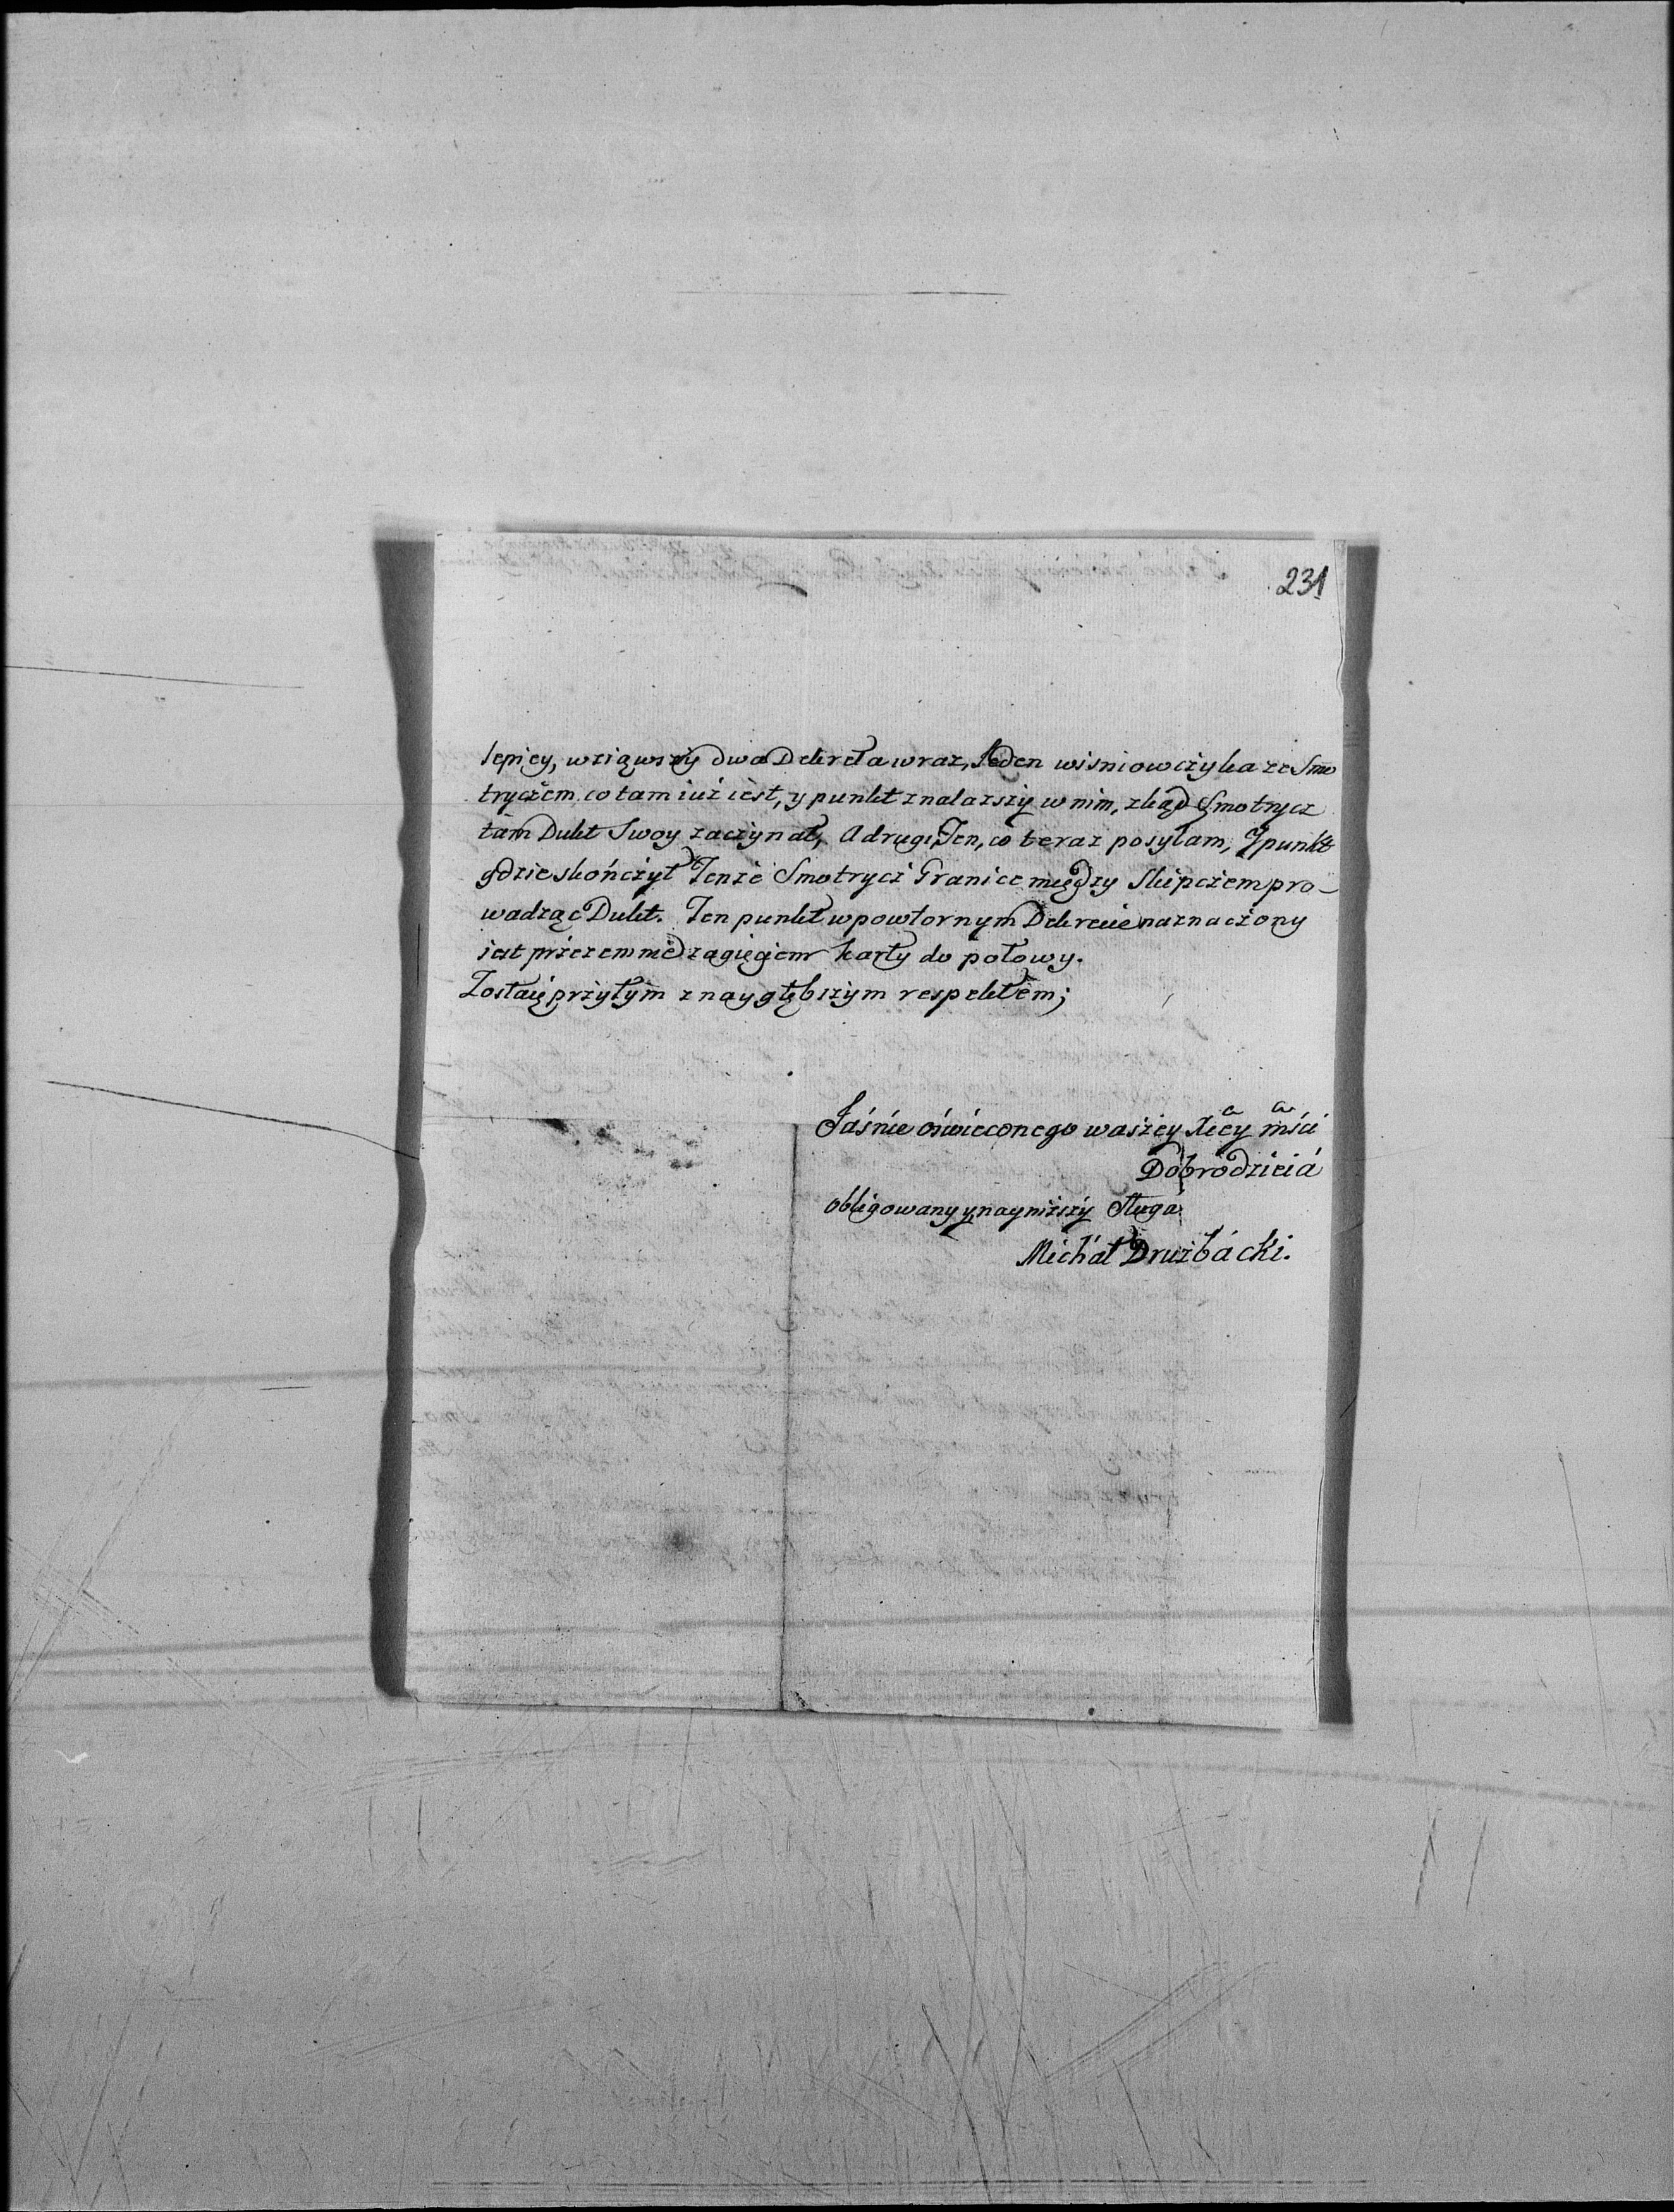 231
lepiey, wziąwszy dwa Dekreta wraz, Jeden wisniowczyka ze Smo
tryczem co tam iuż iest, y punkt znalazszy w nim, zkąd Smotrycz
tám Dukt Swoy zaczynał, A drugi Ten, co teraz posyłam, Y punkt
gdzie skończył Tenże Smotrycz Granice między Slupczem pro-
wadząc Dukt. Ten punkt w powtornym Dekrecie naznaczony
jest przezemnie zagięciem karty do połowy.
Zostaię przytym z naygłębszym respektem;
Jáśnie oświeconego waszey Xcey mści
Dobrodzieiá
obligowany y naynizszy sługá
Micháł Druzbácki.